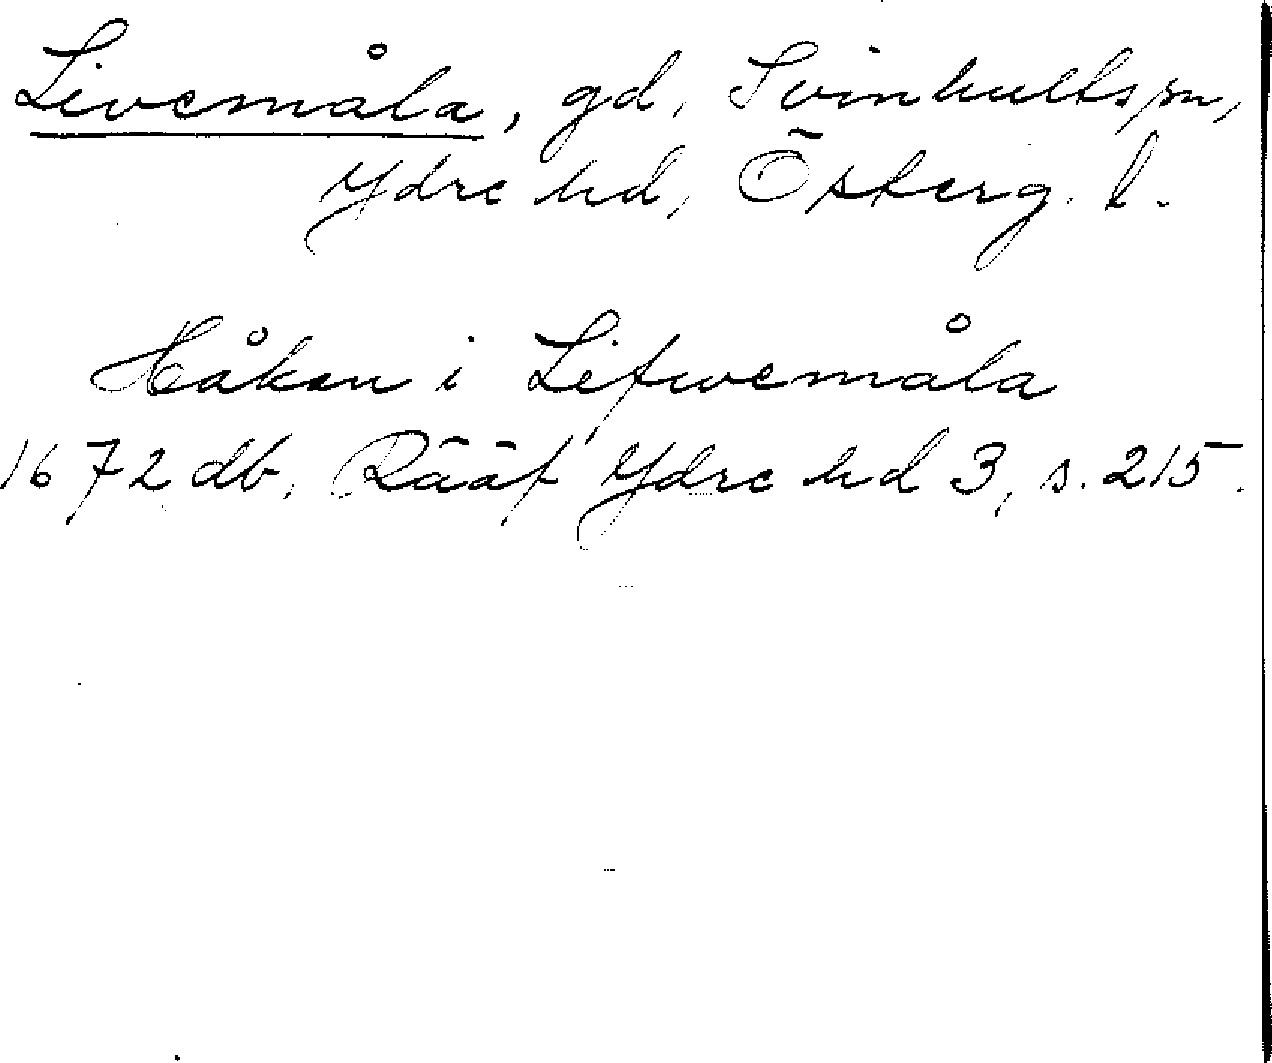 Livemåla, gd, Svinhults sn,
Ydre hd, Österg. l.
Håkan i Lifwemåla
1672 db. Rääf Ydre hd 3, s. 215.